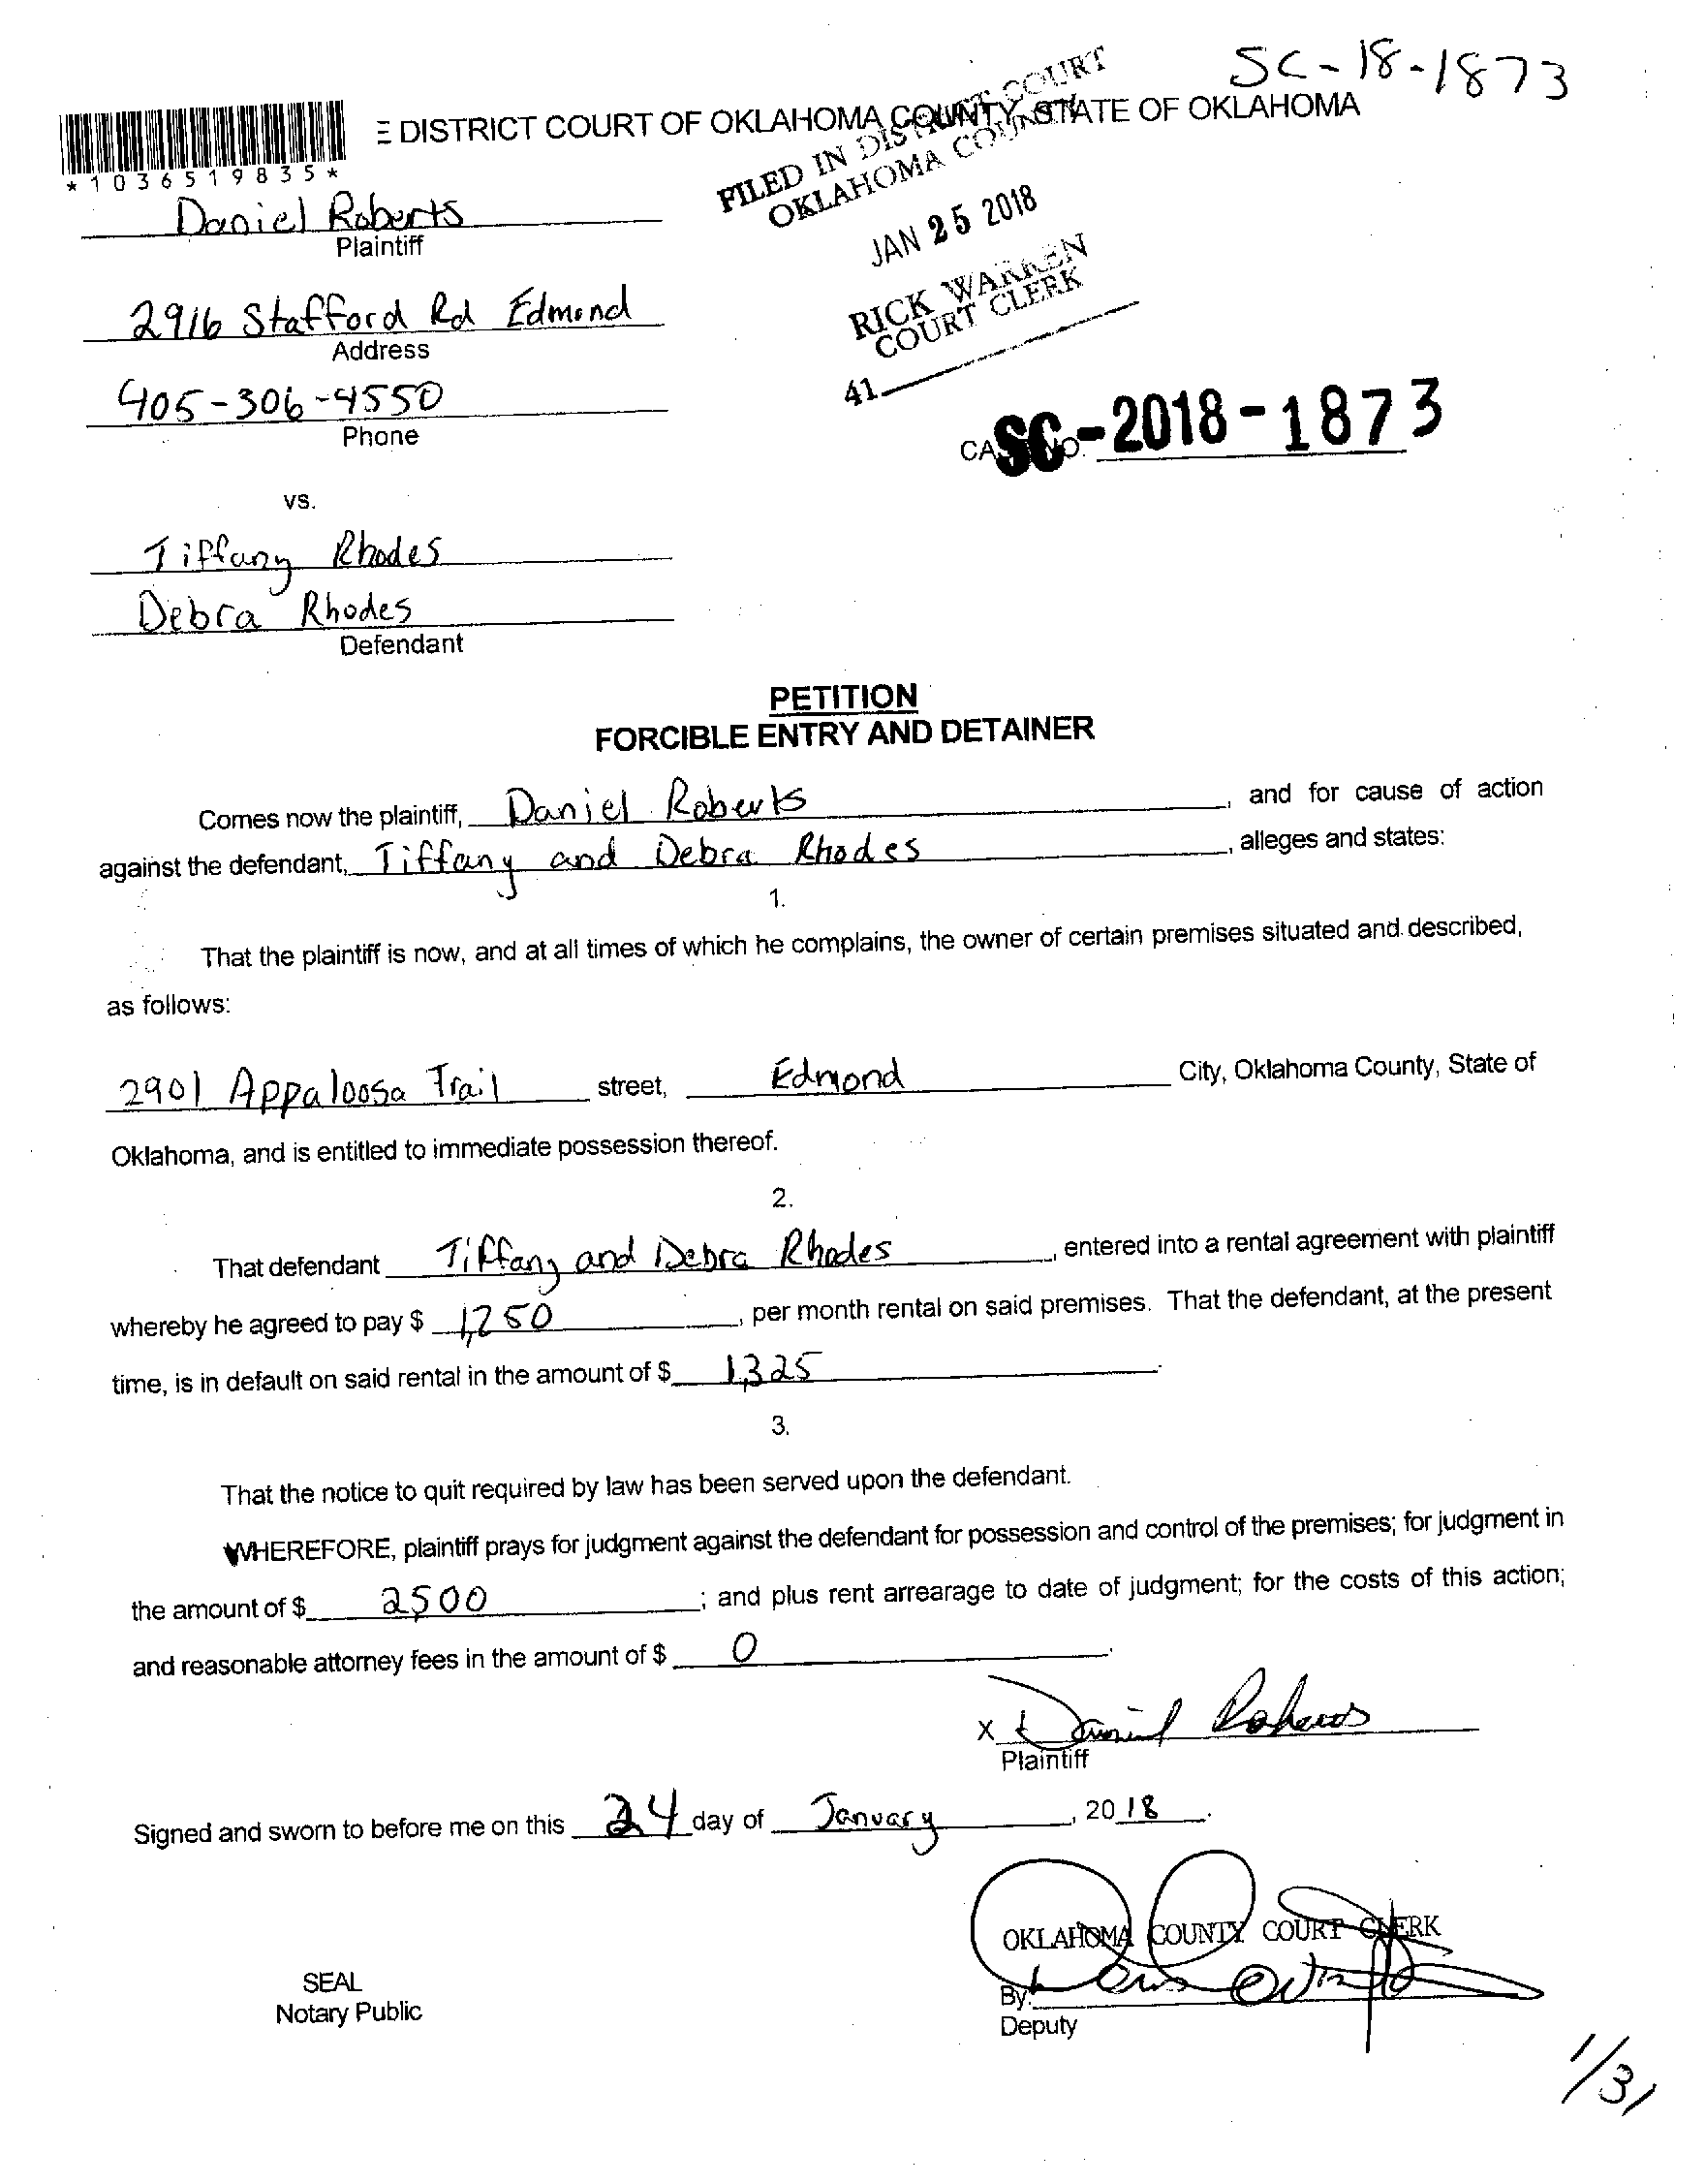 SC-18-1873
E DISTRICT COURT OF OKLAHOMA COUNTY, STATE OF OKLAHOMA
*1036519835*
FILED IN DISTRICT COURT
OKLAHOMA COUNTY
JAN 25 2018
RICK WARREN
COURT CLERK
41
Daniel Roberts
Plaintiff
2916 Stafford Rd Edmond
Address
405-306-4550
Phone
CASE NO. SC-2018-1873
vs.
Tiffany Rhodes
Debra Rhodes
Defendant
PETITION
FORCIBLE ENTRY AND DETAINER
Comes now the plaintiff, Daniel Roberts, and for cause of action
against the defendant, Tiffany and Debra Rhodes, alleges and states:
1.
That the plaintiff is now, and at all times of which he complains, the owner of certain premises situated and described,
as follows:
2901 Appaloosa Trail street, Edmond City, Oklahoma County, State of
Oklahoma, and is entitled to immediate possession thereof.
2.
That defendant Tiffany and Debra Rhodes, entered into a rental agreement with plaintiff
whereby he agreed to pay $ 1,250, per month rental on said premises. That the defendant, at the present
time, is in default on said rental in the amount of $ 1,325.
3.
That the notice to quit required by law has been served upon the defendant.
WHEREFORE, plaintiff prays for judgment against the defendant for possession and control of the premises; for judgment in
the amount of $ 2,500; and plus rent arrearage to date of judgment; for the costs of this action;
and reasonable attorney fees in the amount of $ 0.
x Daniel Roberts
Plaintiff
Signed and sworn to before me on this 24 day of January, 2018.
OKLAHOMA COUNTY COURT CLERK
SEAL
Notary Public
By:
Deputy
1/31